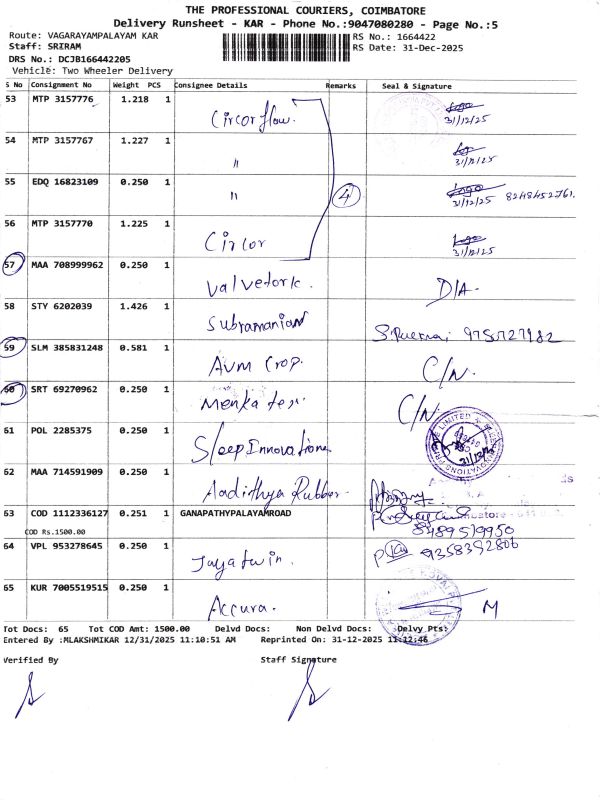 THE PROFESSIONAL COURIERS, COIMBATORE
Delivery Runsheet - KAR - Phone No.:9047080280 - Page No.:5
Route: VAGARAYAMPALAYAM KAR RS No.: 1664422
Staff: SRIRAM RS Date: 31-Dec-2025
DRS No.: DCJB166442205
Vehicle: Two Wheeler Delivery
S No Consignment No Weight PCS Consignee Details Remarks Seal & Signature
53 MTP 3157776 1.218 1 Circorflow. 31/12/25
54 MTP 3157767 1.227 1 " 31/12/25
55 EDQ 16823109 0.250 1 " 4 31/12/25 8248452761.
56 MTP 3157770 1.225 1 Circor 31/12/25
57 MAA 708999962 0.250 1 Valvetork. D/A.
58 STY 6202039 1.426 1 Subramanian
59 SLM 385831248 0.581 1 Avm Crop. C/N.
60 SRT 69270962 0.250 1 Menka tex. C/N.
61 POL 2285375 0.250 1 Sleep Innovations
62 MAA 714591909 0.250 1 Aadithya Rubber.
63 COD 1112336127 0.251 1 GANAPATHYPALAYAMROAD
8489519950
COD Rs.1500.00
64 VPL 953278645 0.250 1 Jayatwin. 9358392806
65 KUR 7005519515 0.250 1 Accura. M
Tot Docs: 65 Tot COD Amt: 1500.00 Delvd Docs: Non Delvd Docs: Delvy Pts:
Entered By :MLAKSHMIKAR 12/31/2025 11:10:51 AM Reprinted On: 31-12-2025 11:12:46
Verified By Staff Signature